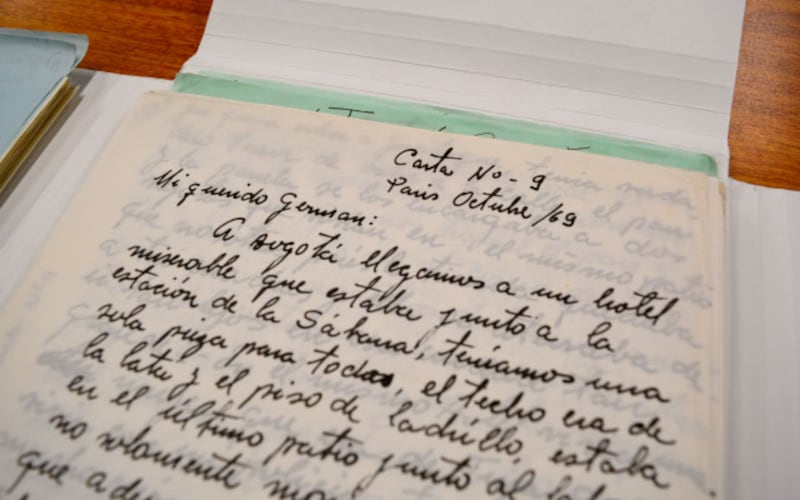 Carta No - 9
Paris Octubre /69
Mi querido German:
A Bogotá llegamos a un hotel
miserable que estaba junto a la
estación de la Sábana, teníamos una
sola pieza para todas, el techo era de
la lata y el piso de ladrillo, estaba
en el último patio junto al
no solamente
que